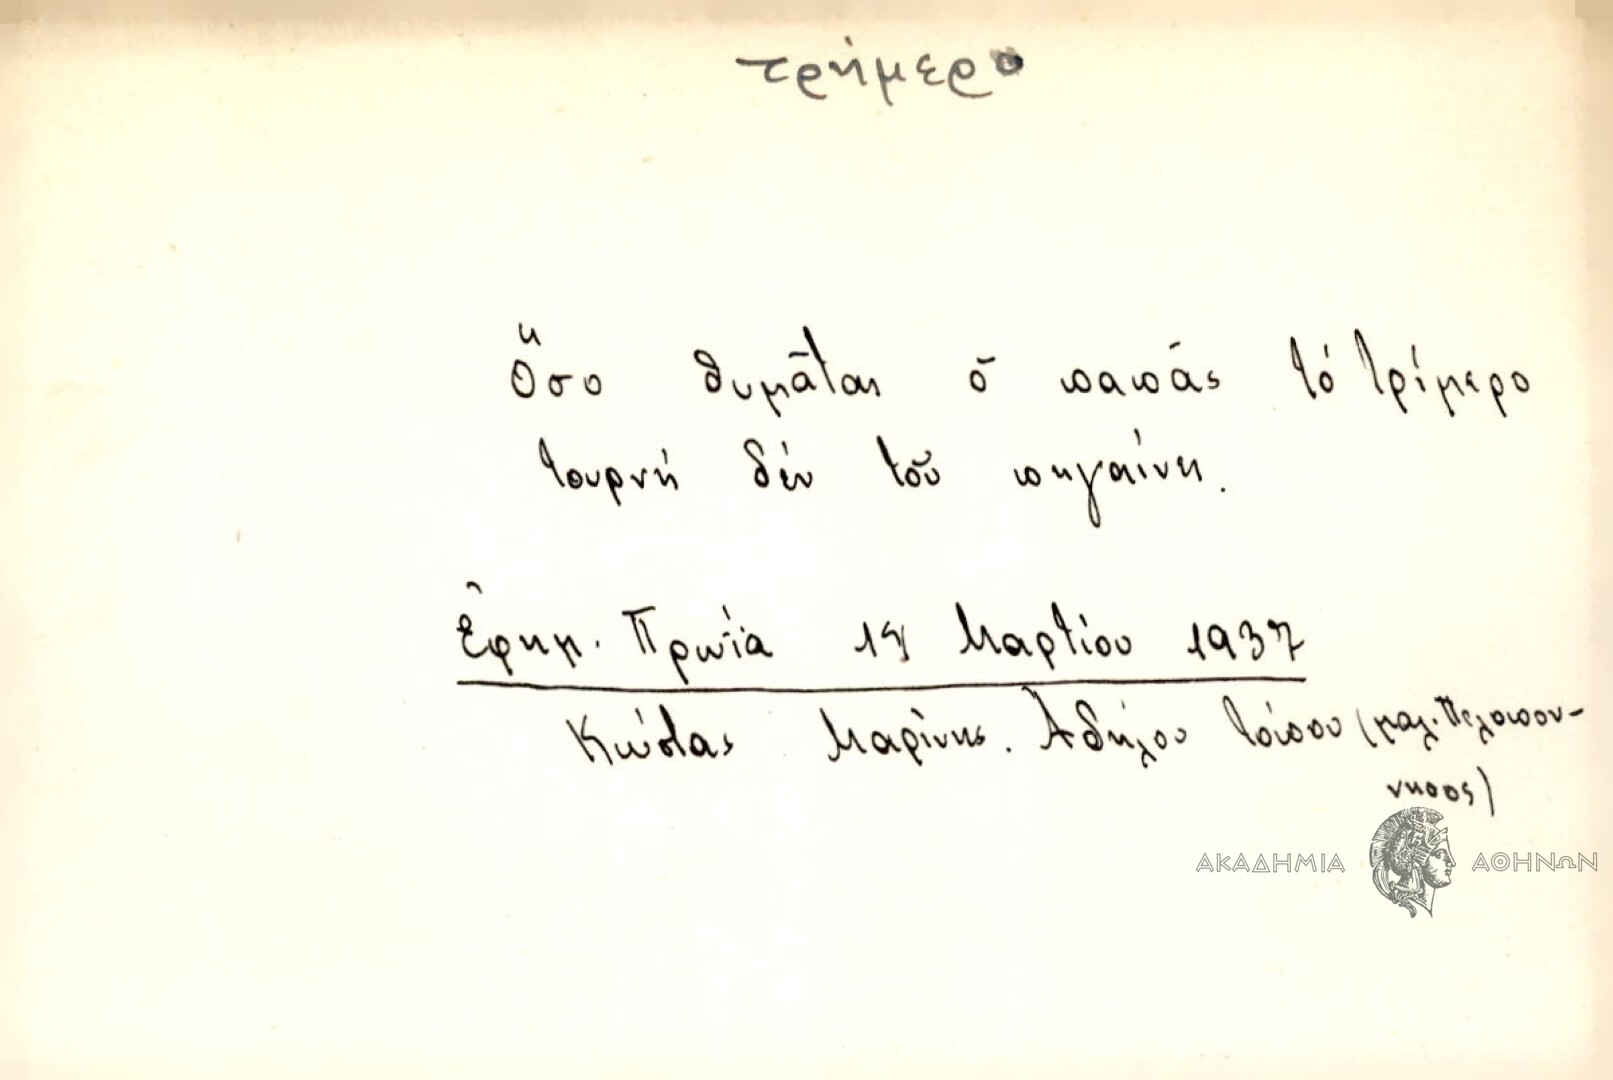 τρήμερο
Ὅσο θυμᾶται ὁ παπᾶς τό τρίμερο
τουρνή δέν τοῦ πηγαίνει.
Ἐφημ. Πρωΐα Μαρτίου 1937
Κώστας Μαρίνης. Ἀδήλου τόπου (μαλ. Πελοπον-
νησος)
ΑΚΑΔΗΜΙΑ ΑΘΗΝΩΝ